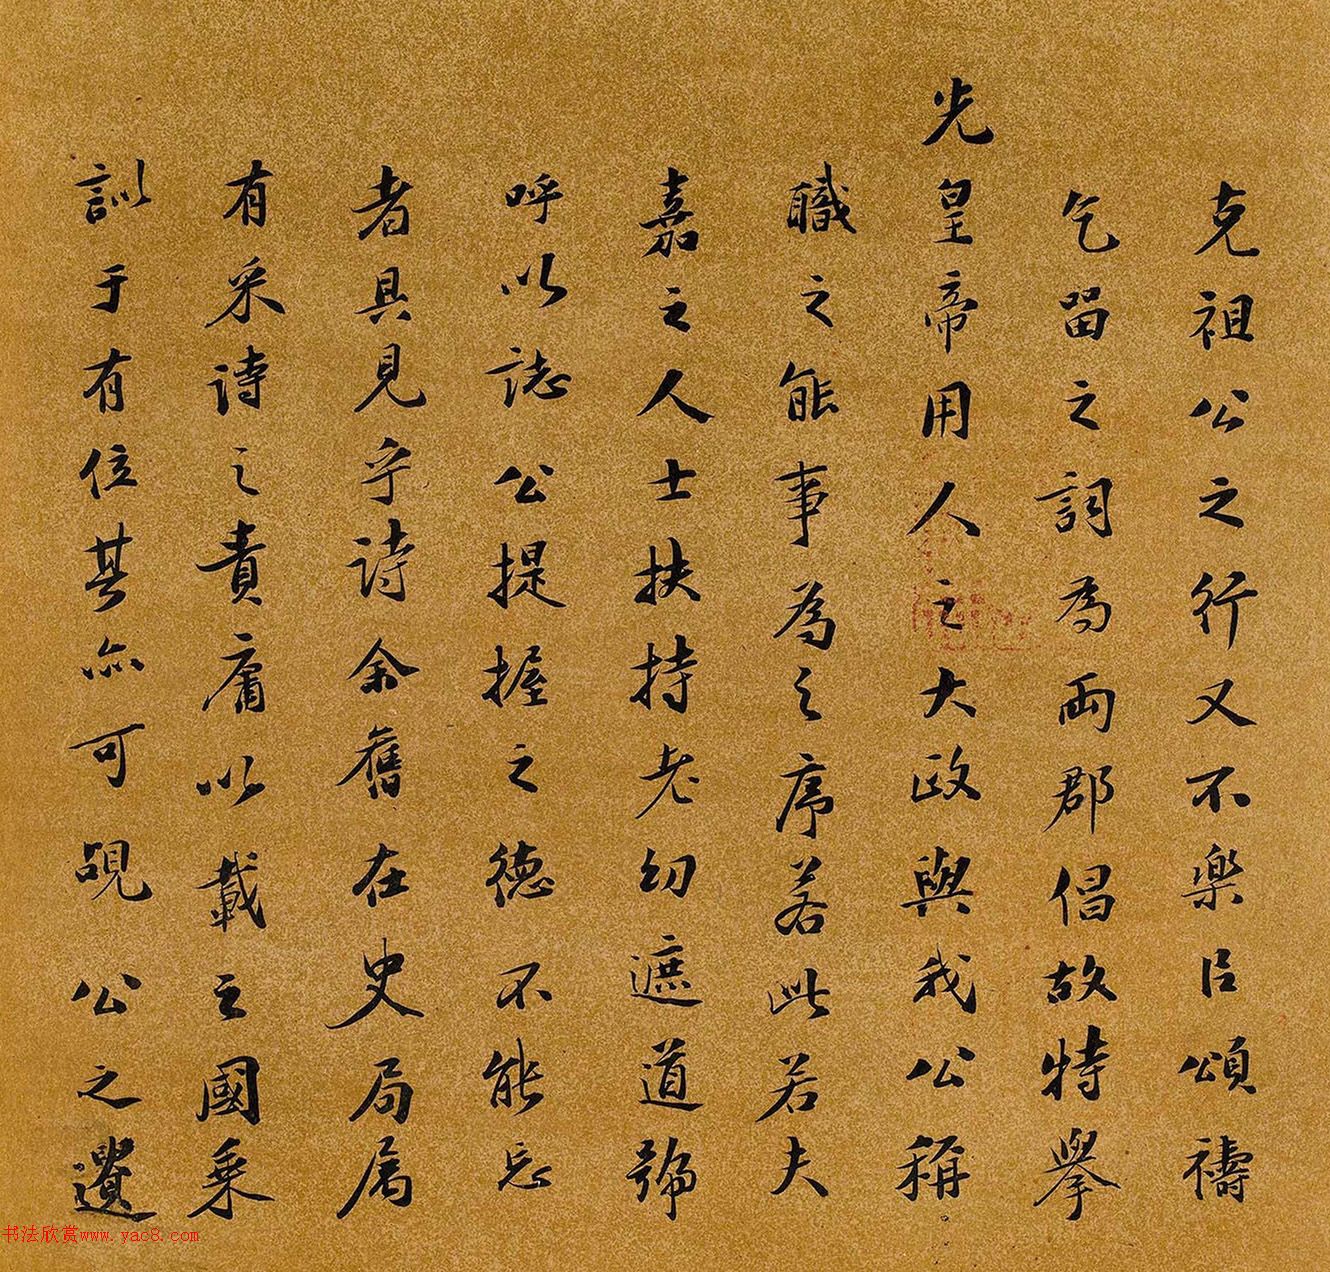 克祖公之行又不樂臣頌禱
乞留之詞為兩郡倡故特舉
光皇帝用人之大政與我公稱
職之能事為之序若此若夫
嘉之人士扶持老幼遮道號
呼以誌公提握之德不能忘
者具見乎詩余舊在史局属
有采詩之責庸以載之國乗
訓于有位其亦可覘公之遺
书法欣赏www.yac8.com